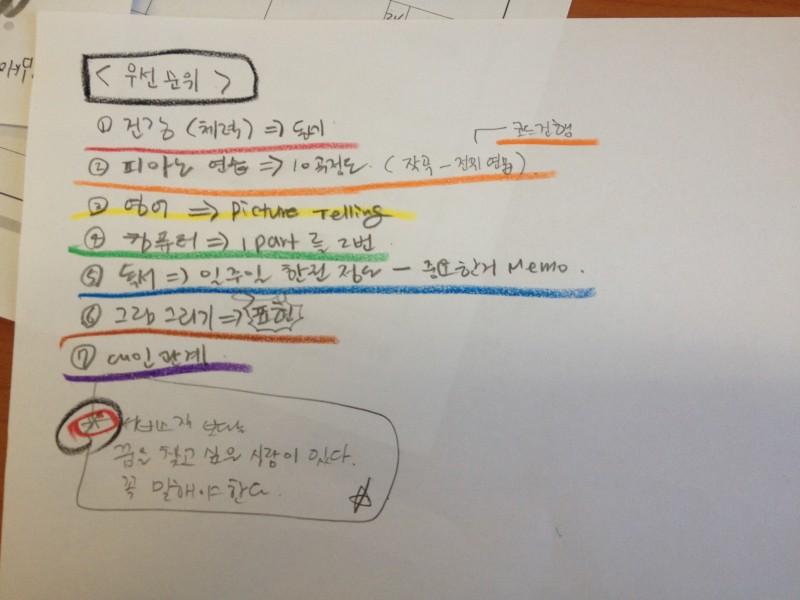 < 우선순위 >
① 건강 (체력) =>
코드진행
② 피아노 연습 => 10곡정도. (작곡 -
③ 영어 => picture Telling
④ 컴퓨터 => 1 part 를 2번
⑤ 독서 => 일주일 한권 정도 - 중요한거 Memo.
⑥ 그림 그리기 => 표현
⑦ 대인관계
* 보다는
꿈을 찾고 싶은 사람이 있다.
꼭 말해야 한다.